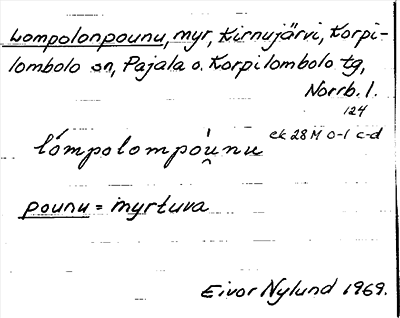 Lompolonpounu, myr, Kirnujärvi, Korpi-
lombolo sn, Pajala o. Korpilombolo tg,
Norrb. l.
124
ek 28 M 0-1 c-d
lómpolompòu̯nu
pounu = myrtuva
Eivor Nylund 1969.